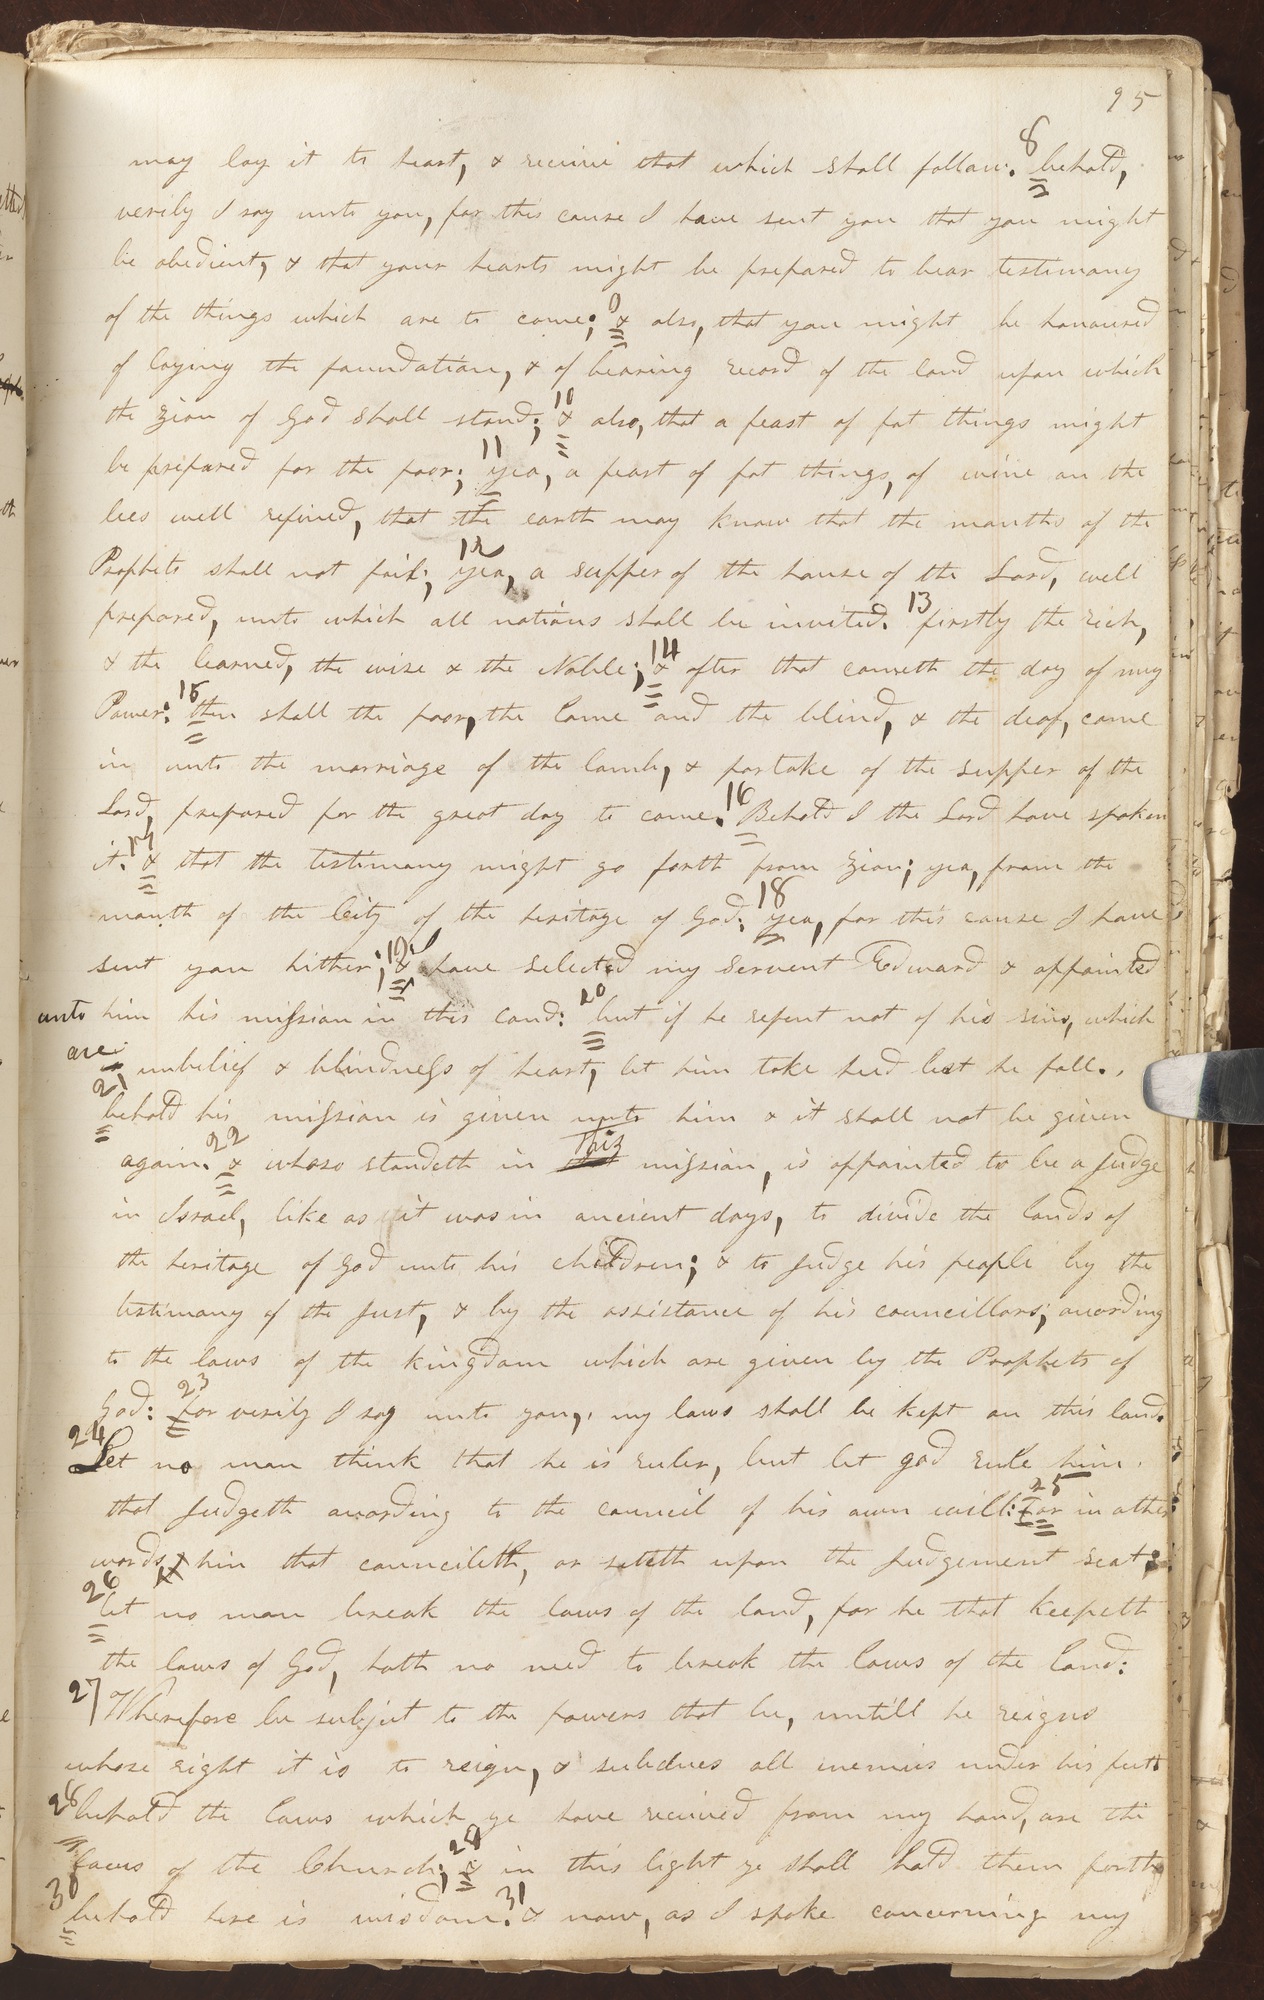 95
may lay it to heart, & receive that which shall follow. 8 behold,
verily I say unto you, for this cause I have sent you that you might
be obedient, & that your hearts might be prepared to bear testimony
of the things which are to come; 9 & also, that you might be honoured
of laying the foundation, & of bearing record of the land upon which
the zion of God shall stand; 10 & also, that a feast of fat things might
be prepared for the poor; 11 yea, a feast of fat things, of wine on the
lees well refined, that the earth may know that the mouths of the
Prophets shall not fail; 12 yea, a supper of the house of the Lord, well
prepared, unto which all nations shall be invited. 13 firstly the rich,
& the learned, the wise & the Noble; 14 & after that cometh the day of my
Power: 15 then shall the poor, the lame and the blind, & the deaf, come
in unto the marriage of the lamb, & partake of the supper of the
Lord, prepared for the great day to come. 16 Behold I the Lord have spoken
it. 17 & that the testimony might go forth from zion; yea, from the
mouth of the City of the heritage of God: 18 yea, for this cause I have
sent you hither; 19 & have selected my servent Edward & appointed
unto him his mission in this land: 20 but if he repent not of his sins, which
are unbelief & blindness of heart, let him take heed lest he fall.
21 behold his mission is given unto him & it shall not be given
again. 22 & whoso standeth in this mission, is appointed to be a Judge
in Israel, like as it was in ancient days, to divide the lands of
the heritage of God unto his children; & to Judge his people by the
testimony of the Just, & by the assistance of his councillors; acording
to the laws of the kingdom which are given by the Prophets of
God: 23 for verily I say unto you, my laws shall be kept on this land.
24 Let no man think that he is ruler, but let god rule him
that Judgeth acording to the council of his own will: 25 or in other
words, him that councileth, or siteth upon the Judgement seat;
26 let no man break the laws of the land, for he that keepeth
the laws of God, hath no need to break the laws of the land:
27 Wherefore be subject to the powers that be, untill he reigns
whose right it is to reign, & subdues all enemies under his feet.
28 behold the laws which ye have received from my hand, are the
laws of the Church; 29 & in this light ye shall hold them forth,
30 behold here is wisdom. 31 & now, as I spoke concerning my